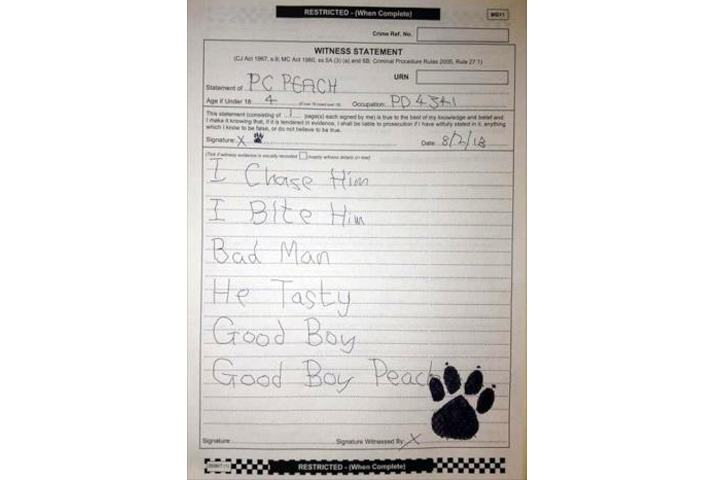 RESTRICTED - (When Complete)
MG11
Crime Ref. No.
WITNESS STATEMENT
(CJ Act 1967, s.9; MC Act 1980, ss.5A (3) (a) and 5B; Criminal Procedure Rules 2005, Rule 27.1)
URN
Statement of PC PEACH
Age if Under 18: 4 (if over 18 insert over 18) Occupation: PD 4341
This statement (consisting of 1 page(s) each signed by me) is true to the best of my knowledge and belief and
I make it knowing that, if it is tendered in evidence, I shall be liable to prosecution if I have wilfully stated in it, anything
which I know to be false, or do not believe to be true.
Signature: X Date: 8/2/18
(Tick if witness evidence is visually recorded (supply witness details on rear)
I Chase Him
I BIte Him
Bad Man
He Tasty
Good Boy
Good Boy Peach
Signature: Signature Witnessed By: X
RESTRICTED - (When Complete)